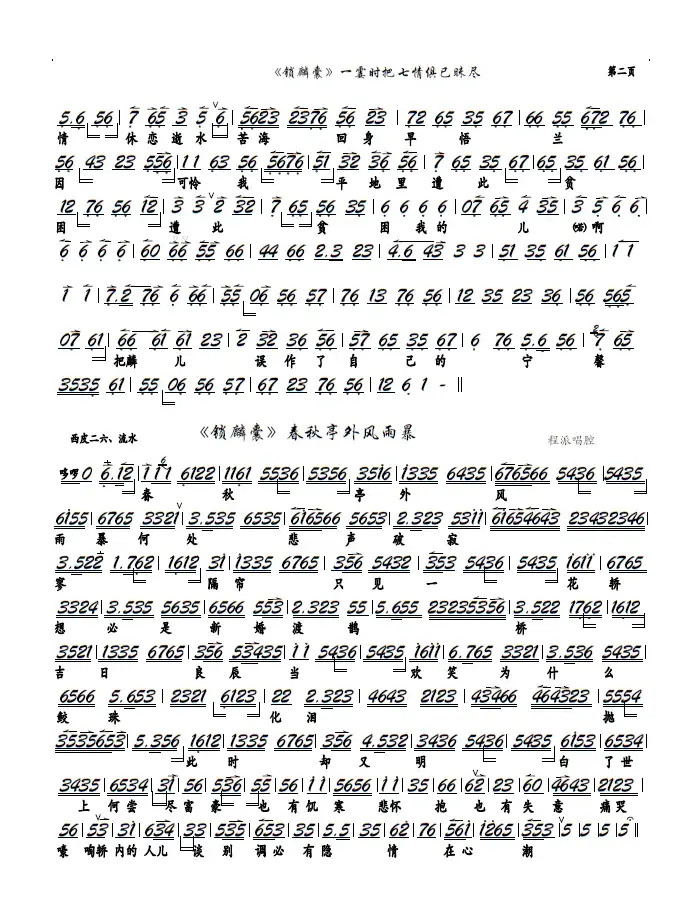 《锁麟囊》一霎时把七情俱已昧尽 第二页
5.6 56 | 7 65 3 5 6 | 5623 2376 56 23 | 72 65 35 67 | 66 55 672 76 |
情 休恋逝水 苦海 回身早悟 兰
56 43 23 556 | 11 63 56 5676 | 51 32 36 56 | 7 65 35 67 | 65 35 61 56 |
因 可怜我 平地里遭此 贫
12 76 56 12 | 3 3 2 32 | 7 65 56 35 | 6 6 6 6 | 07 65 4 35 | 3 5 6 6 |
困 遭此 贫困我的 儿 啊
6 6 6 6 | 60 66 55 66 | 44 66 2.3 23 | 4.6 43 3 3 | 51 35 61 56 | 1 1
1 1 | 7.2 76 6 66 | 55 06 56 57 | 76 13 76 56 | 12 35 23 36 | 56 565 |
07 61 | 66 61 61 23 | 2 32 36 56 | 57 65 35 67 | 6 76 5.6 56 | 7 65
把麟儿 误作了自己的 宁馨
3535 61 | 55 06 56 57 | 67 23 76 56 | 12 6 1 - ‖
西皮二六、流水 《锁麟囊》春秋亭外风雨暴 程派唱腔
哆啰0 6.12 | 111 6122 | 1161 5536 | 5356 3516 | 1335 6435 | 676566 5436 | 5435
春秋亭外风
6155 | 6765 3321 | 3.535 6535 | 616566 5653 | 2.323 5311 | 61654643 23432346 |
雨暴何处 悲声破寂
3.522 1.762 | 1612 31 | 1335 6765 | 356 5432 | 353 5436 | 5435 1611 | 6765
寥 隔帘 只见一 花轿
3324 | 3.535 5635 | 6566 553 | 2.323 55 | 5.655 23235356 | 3.522 1762 | 1612
想必是新婚渡鹊 桥
3521 | 1335 6765 | 356 53435 | 11 5436 | 5435 1611 | 6.765 3321 | 3.536 5435 |
吉日良辰当 欢笑为什么
6566 5.653 | 2321 6123 | 22 2.323 | 4643 2123 | 43466 464323 | 5554
鲛珠 化泪 抛
3535653 | 5.356 1612 | 1335 6765 | 356 4.532 | 3436 5436 | 5435 6153 | 6534 |
此时却又明 白了世
3435 | 6534 | 31 | 56 | 556 | 55 | 56 | 11 | 5656 | 11 | 35 | 66 | 62 | 23 | 60 | 4643 | 2123 |
上何尝尽富豪 也有饥寒悲怀抱也有失意痛哭
56 | 53 | 31 | 634 | 33 | 535 | 653 | 35 | 5.5 | 35 | 62 | 76 | 561 | 1265 | 353 | 5 | 5 | 5 | 5 ‖
嚎啕轿内的人儿谈别调必有隐情在心潮